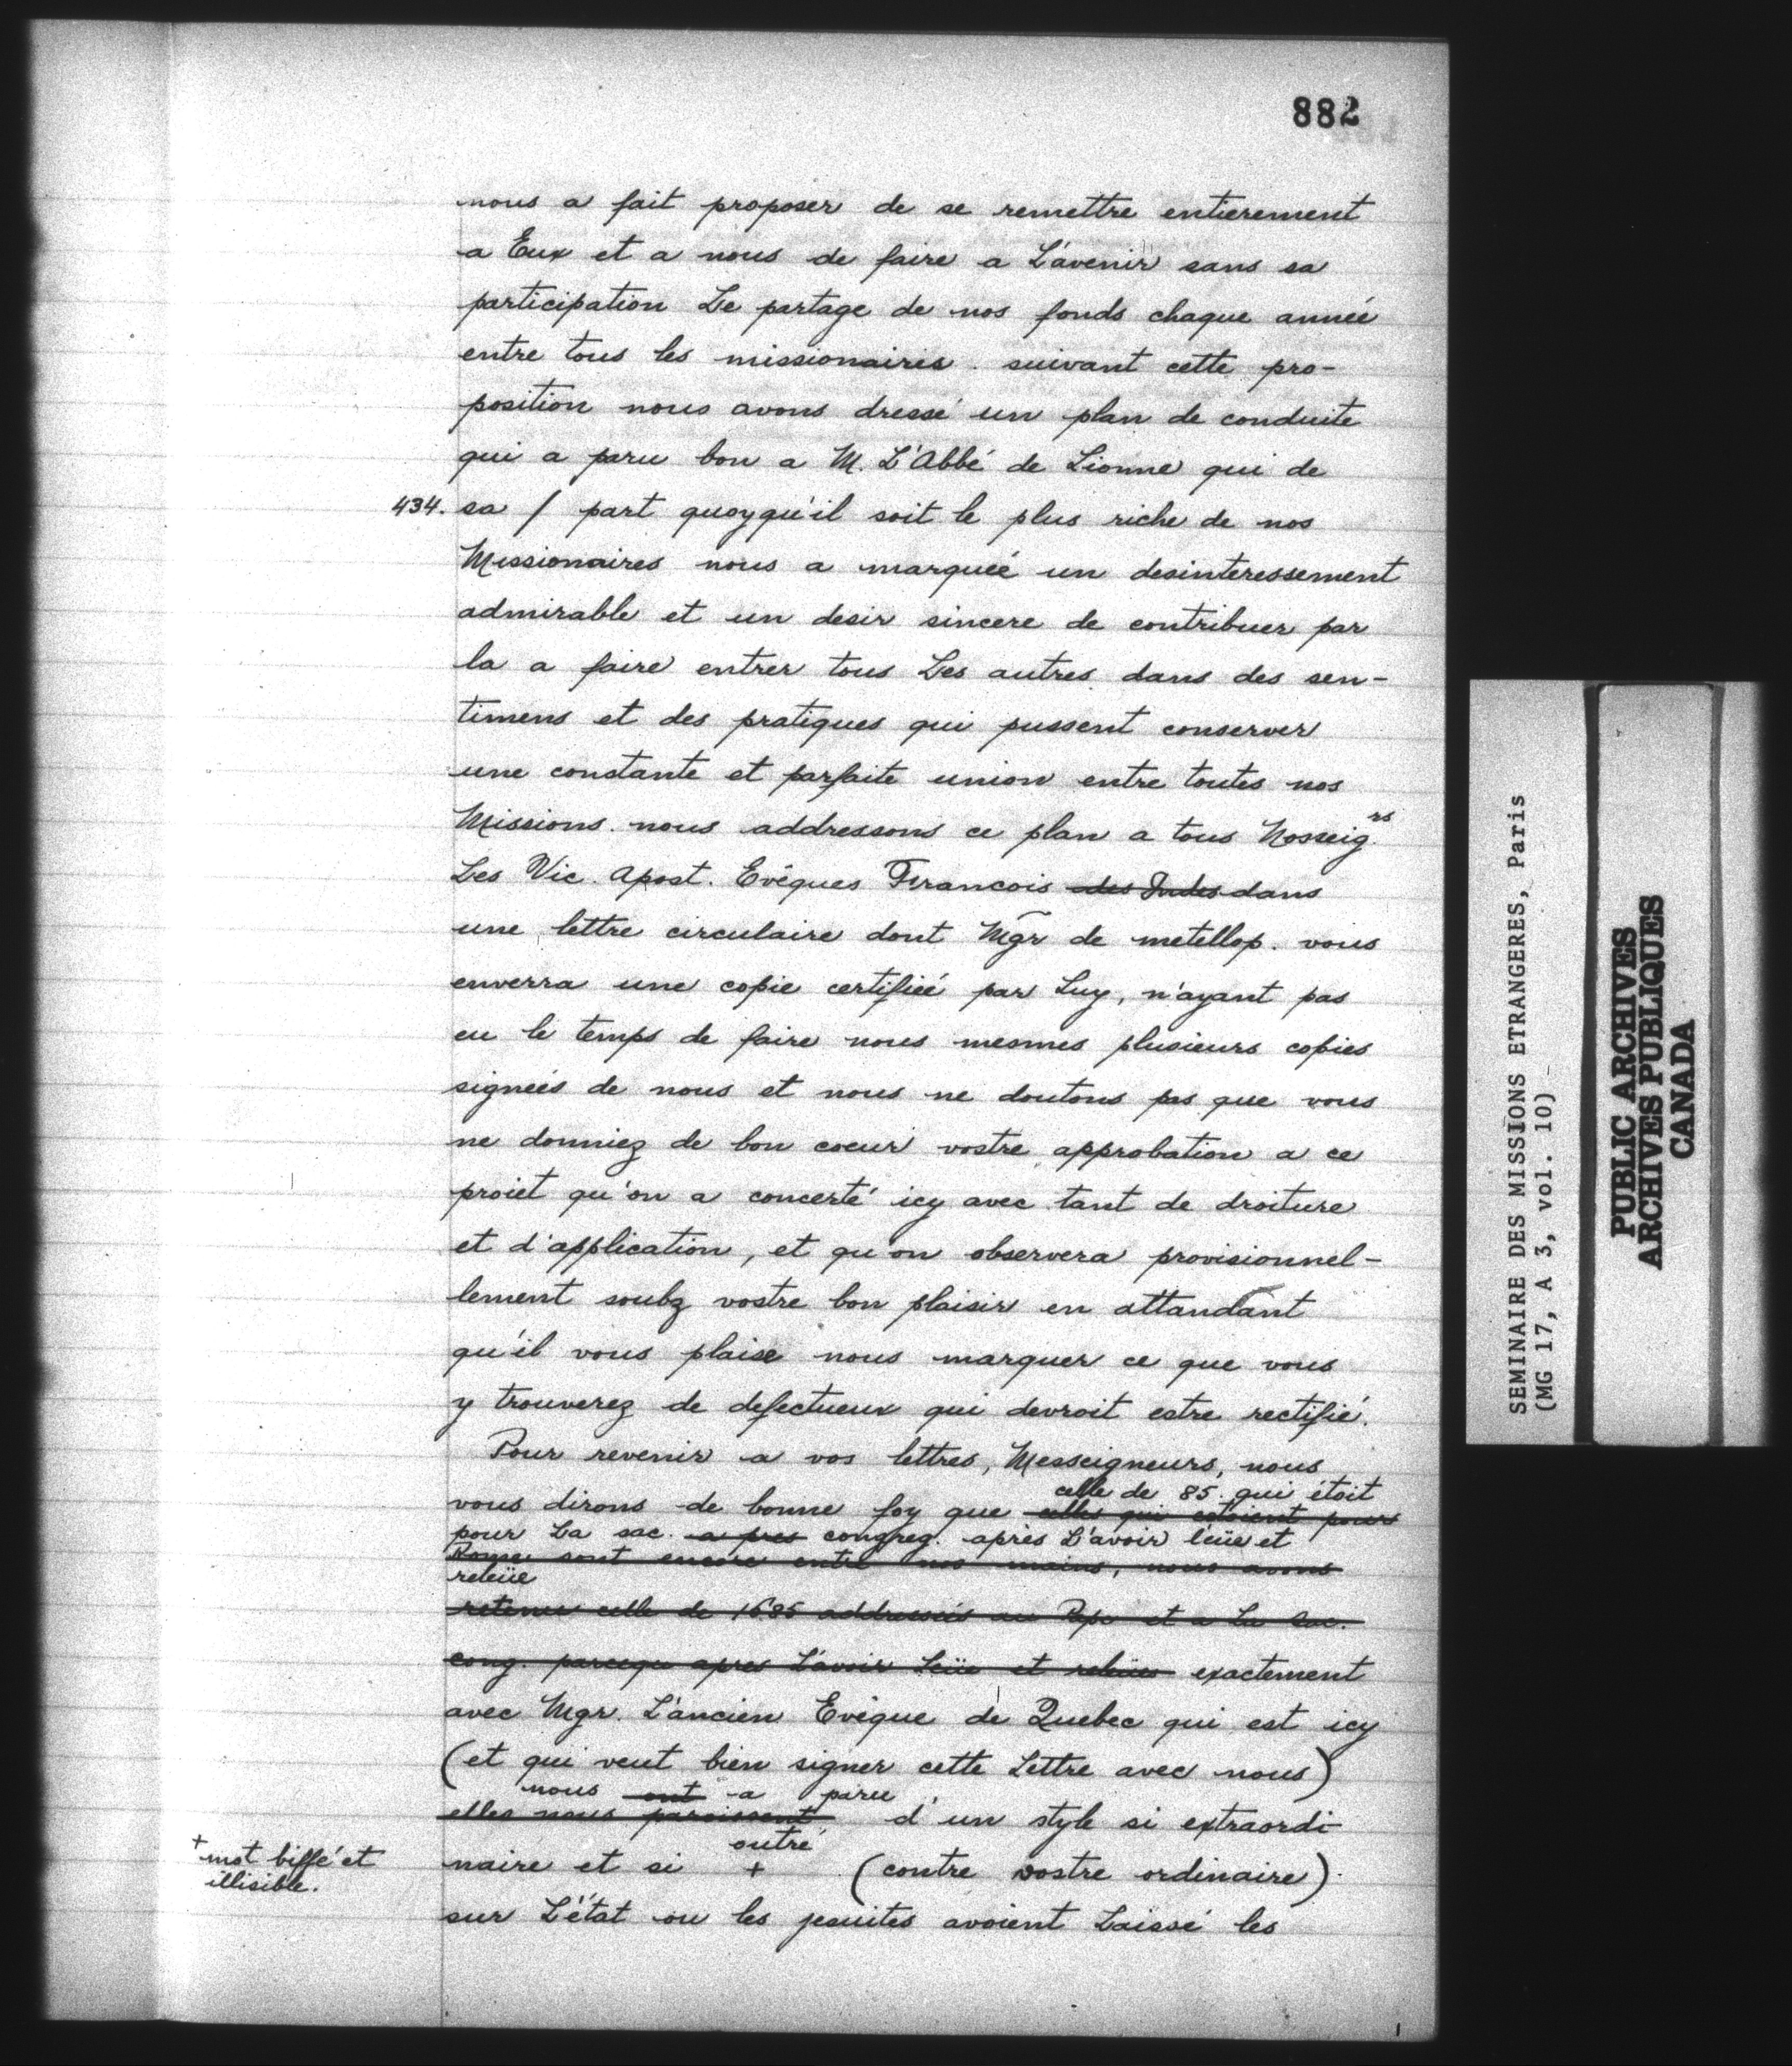 882
nous a fait proposer de se remettre entierement
a Eux et a nous de faire a L'avenir sans sa
participation Le partage de nos fonds chaque année
entre tous les missionaires. suivant cette pro-
position nous avons dressé un plan de conduite
qui a paru bon a M. L'Abbé de Lionne qui de
434. sa / part quoyqu'il soit le plus riche de nos
Missionaires nous a marquéé un desinteressement
admirable et un desir sincere de contribuer par
la a faire entrer tous Les autres dans des sen-
timens et des pratiques qui pussent conserver
une constante et parfaite union entre toutes nos
Missions. nous addressons ce plan a tous Nosseigrs
Les Vic. Apost. Evêques Francois des Indes dans
une lettre circulaire dont Mgr de metellop. vous
enverra une copie certifiéé par Luy, n'ayant pas
eu le temps de faire nous mesmes plusieurs copies
signéés de nous et nous ne doutons pas que vous
ne donniez de bon coeur vostre approbation a ce
proiet qu'on a concerté icy avec tant de droiture
et d'application, et qu'on observera provisionnel-
lement soubz vostre bon plaisir en attandant
qu'il vous plaise nous marquer ce que vous
y trouverez de defectueux qui devroit estre rectifié.
Pour revenir a vos lettres, Messeigneurs, nous
celle de 85. qui étoit
vous dirons de bonne foy que celles qui estoient pour
pour La sac. a pres congreg. après L'avoir leüe et
Rome sont encore entre nos mains, nous avons
releüe
retenu celle de 1685 addresséés au Pape et a La sac.
cong. parceque apres L'avoir Leüe et releües exactement
avec Mgr. L'ancien Evêque de Quebec qui est icy
(et qui veut bien signer cette Lettre avec nous)
nous ont a paru
elles nous paroissent d'un style si extraordi-
outré
naire et si + (contre vostre ordinaire)
+ mot biffé et
illisible.
sur L'état ou les jesuites avoient Laissé les
SEMINAIRE DES MISSIONS ETRANGERES, Paris
(MG 17, A 3, vol. 10)
PUBLIC ARCHIVES
ARCHIVES PUBLIQUES
CANADA